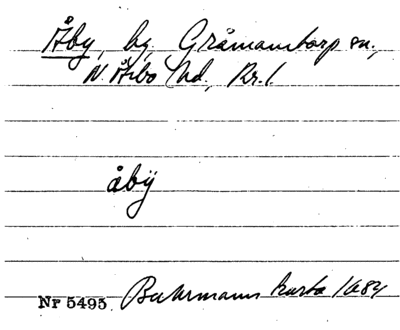 Åby, by, Gråmanstorp sn.,
N. Åsbo hd., Kr. l.
åbÿ
Nr 5495 Buhrmanns karta 1684